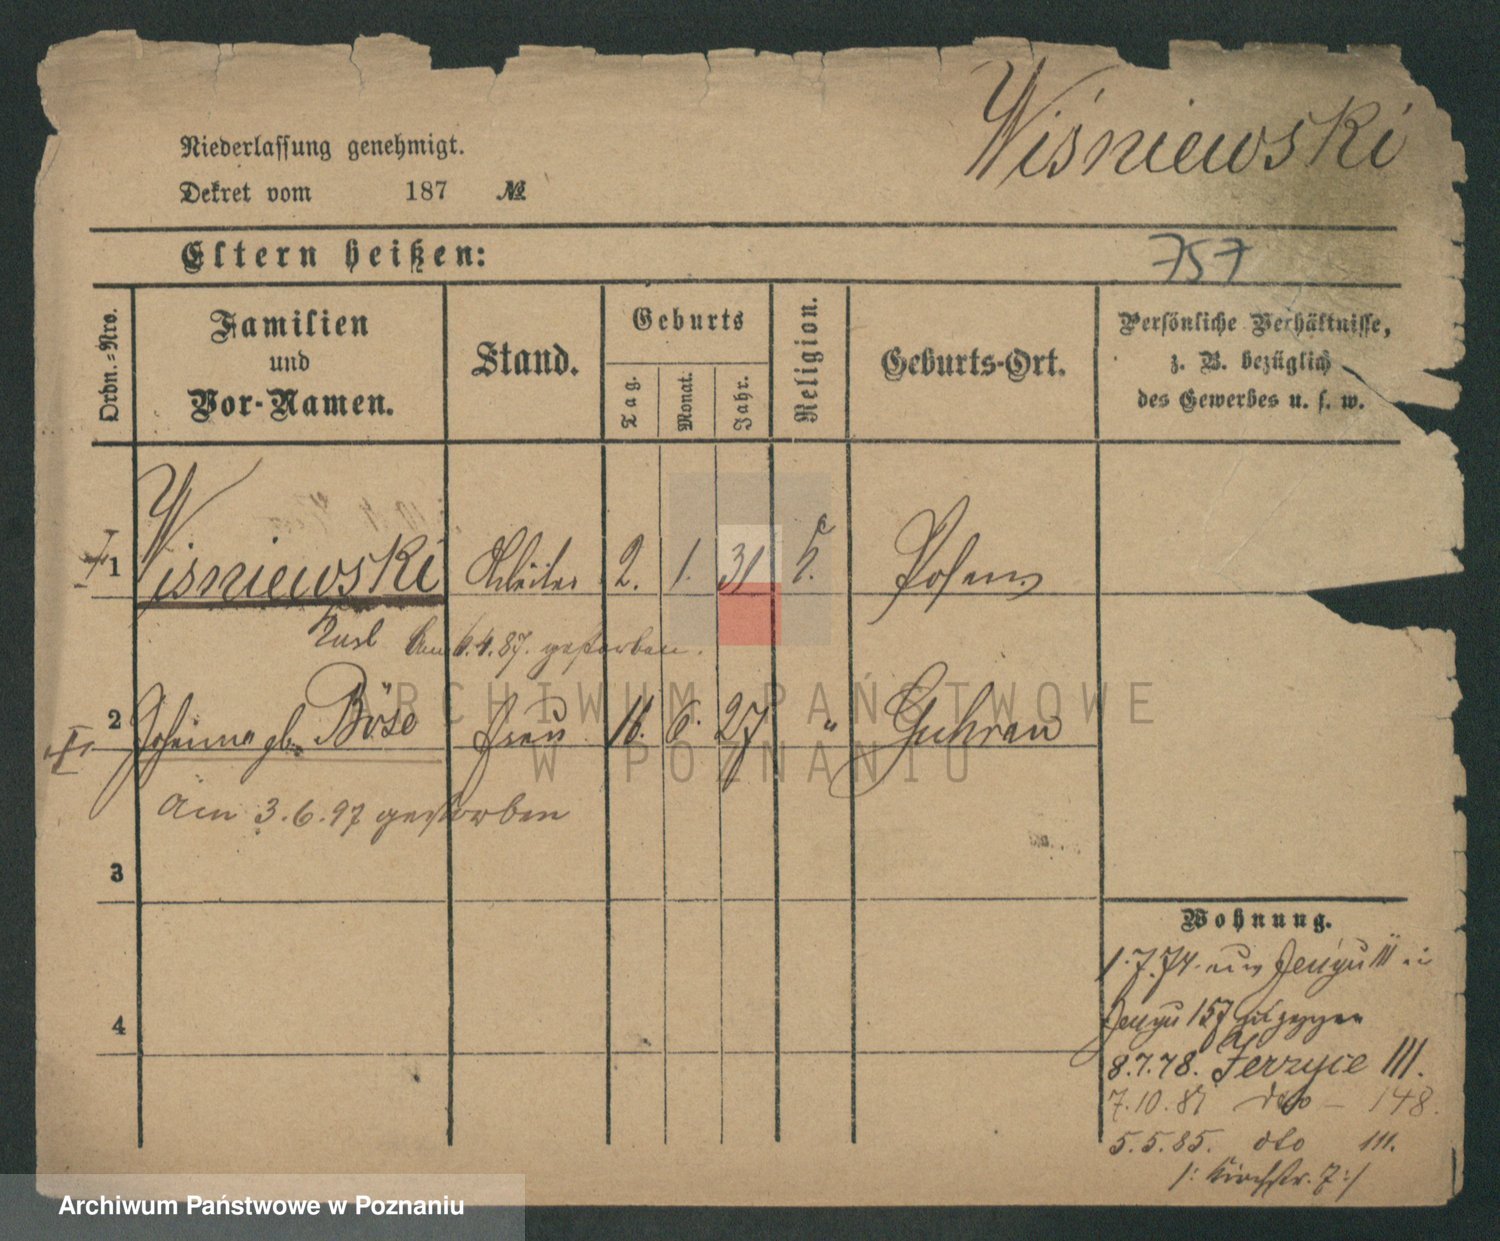 Wiśniewski
Niederlassung genehmigt.
Dekret vom 187 №
Eltern heißen:
757
Ordn.-Nro.
Familien
und
Vor-Namen.
Stand.
Geburts
Tag.
Monat.
Jahr.
Religion.
Geburts-Ort.
Persönliche Verhältnisse,
z. B. bezüglich
des Gewerbes u. s. w.
1 Wisniewski Arbeiter 2. 1. 31 Posen
Karl am 6.4.87. gestorben.
2 Johanna gb. Böse Frau 16. 6. 27 " Guhrau
am 3.6.97 gestorben
3
4
Wohnung.
1.7.74. aus Jerzyce III in
Jerzyce 157 zugezogen
8.7.78. Jerzyce 111.
7.10.81 dto – 148.
5.5.85. dto 111.
/: Kirchstr. 7 :/
ARCHIWUM PAŃSTWOWE
W POZNANIU
Archiwum Państwowe w Poznaniu